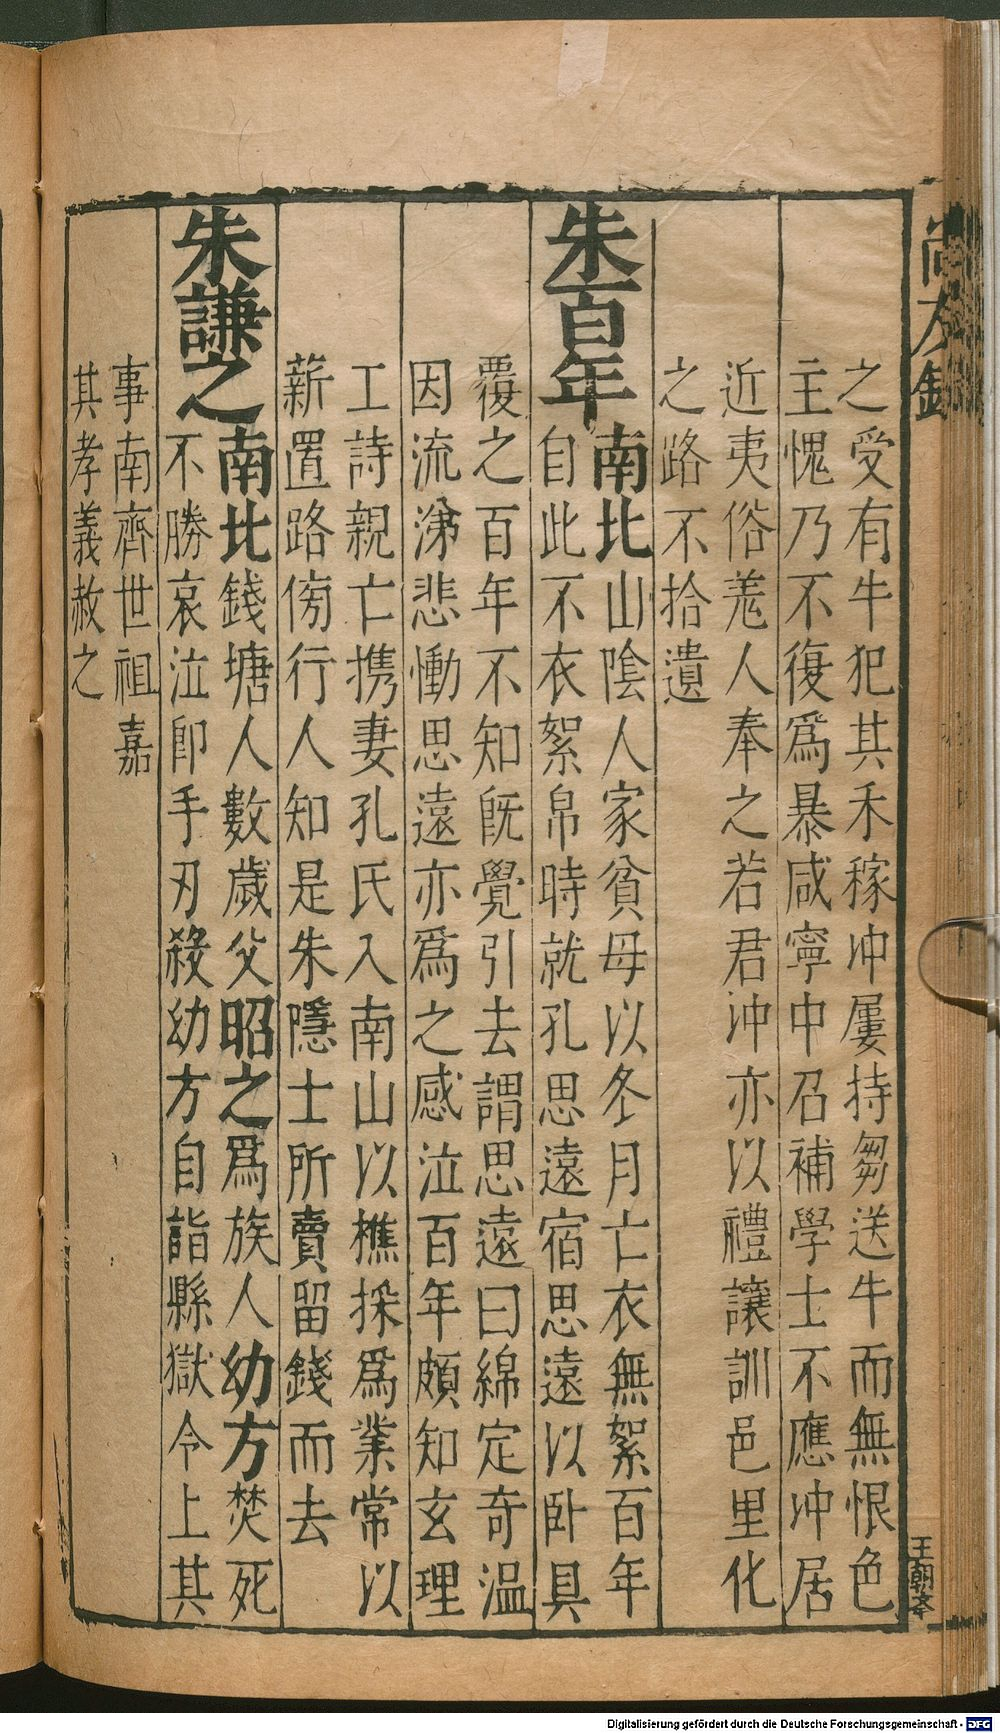 尚友錄
之受有牛犯其禾稼冲屢持芻送牛而無恨色
主愧乃不復爲暴咸寧中召補學士不應冲居
近夷俗羗人奉之若君冲亦以禮讓訓邑里化
之路不拾遺
朱百年
南比山陰人家貧母以冬月亡衣無絮百年
自此不衣絮帛時就孔思遠宿思遠以卧具
覆之百年不知旣覺引去謂思遠曰綿定奇温
因流涕悲慟思遠亦爲之感泣百年頗知玄理
工詩親亡携妻孔氏入南山以樵採爲業常以
薪置路傍行人知是朱隱士所賣留錢而去
朱謙之
南比錢塘人數歲父昭之爲族人幼方焚死
不勝哀泣卽手刃殺幼方自詣縣獄令上其
事南齊世祖嘉
其孝義赦之
王朝
Digitalisierung gefördert durch die Deutsche Forschungsgemeinschaft - DFG